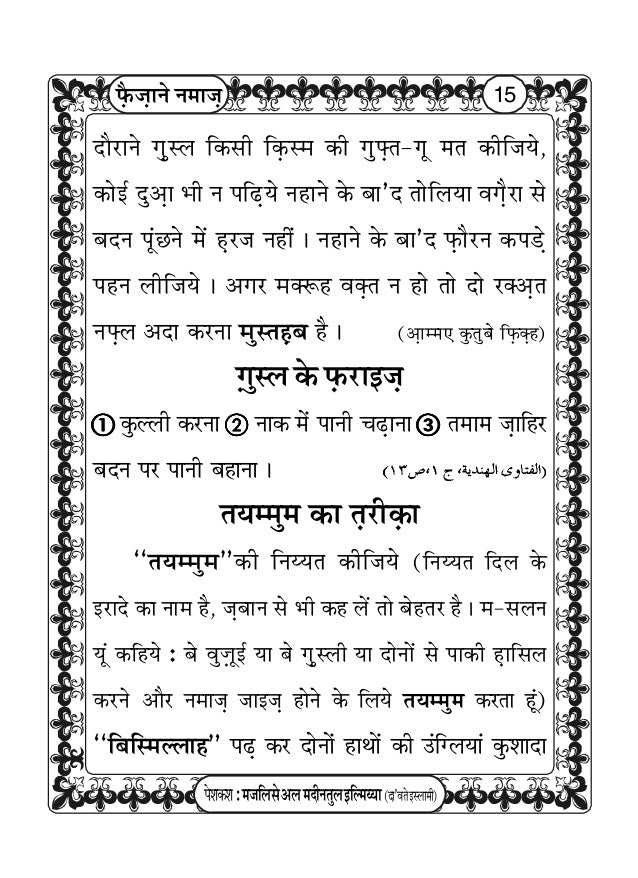 फ़ैज़ाने नमाज़
15
दौराने ग़ुस्ल किसी क़िस्म की गुफ़्त-गू मत कीजिये,
कोई दुआ़ भी न पढ़िये नहाने के बा'द तोलिया वग़ैरा से
बदन पूंछने में ह़रज नहीं । नहाने के बा'द फ़ौरन कपड़े
पहन लीजिये । अगर मक्रूह वक़्त न हो तो दो रक्अ़त
नफ़्ल अदा करना मुस्तह़ब है । (आ़म्मए कुतुबे फ़िक़्ह)
ग़ुस्ल के फ़राइज़
① कुल्ली करना ② नाक में पानी चढ़ाना ③ तमाम ज़ाहिर
बदन पर पानी बहाना । (الفتاوى الهندية، ج ١،ص١٣)
तयम्मुम का त़रीक़ा
‘‘तयम्मुम’’की निय्यत कीजिये (निय्यत दिल के
इरादे का नाम है, ज़बान से भी कह लें तो बेहतर है । म-सलन
यूं कहिये : बे वुज़ूई या बे ग़ुस्ली या दोनों से पाकी ह़ासिल
करने और नमाज़ जाइज़ होने के लिये तयम्मुम करता हूं)
‘‘बिस्मिल्लाह’’ पढ़ कर दोनों हाथों की उंग्लियां कुशादा
पेशकश : मजलिसे अल मदीनतुल इल्मिय्या (दा'वते इस्लामी)